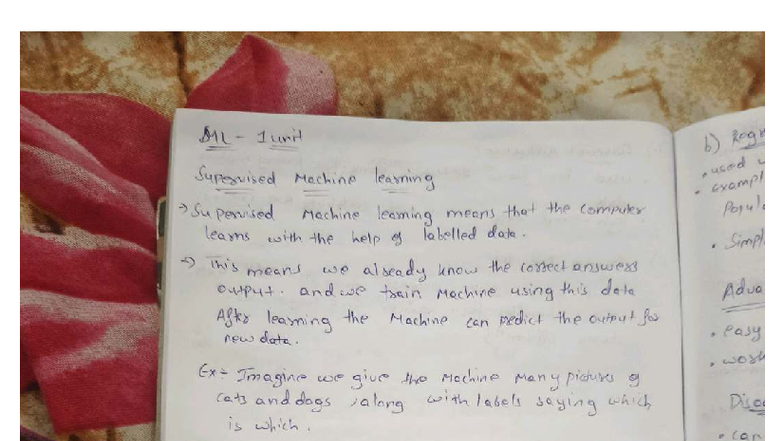 ML - 1 unit
Supervised Machine learning
→ Supervised Machine learning means that the computer
learns with the help of labelled data.
→ This means we already know the correct answers
output. and we train Machine using this data
After learning the Machine can predict the output for
new data.
Ex = Imagine we give the Machine Many pictures of
cats and dogs, along with labels saying which
is which.
b)
• used
•
•
• easy
•